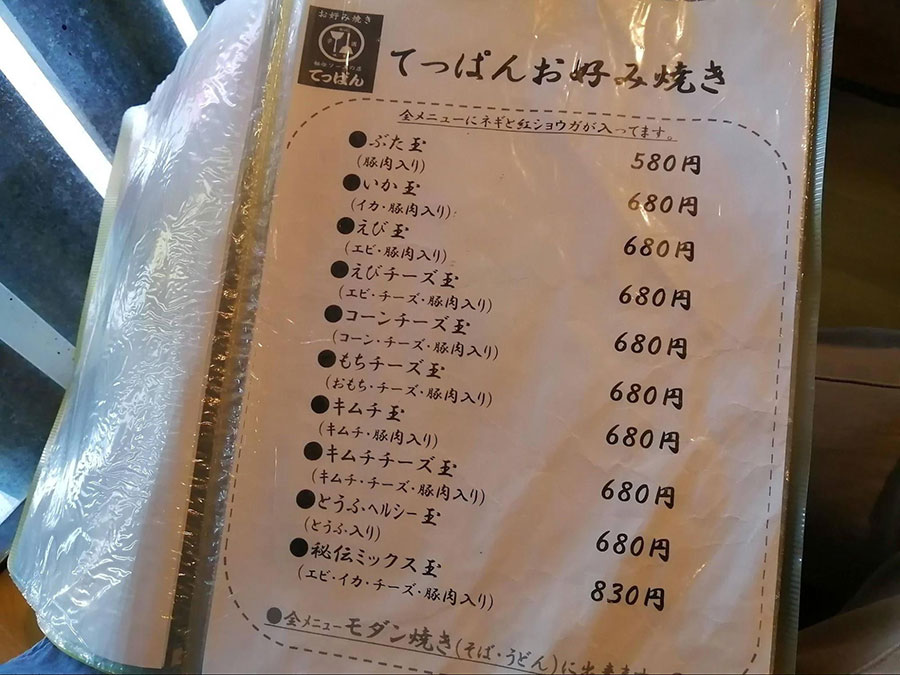 お好み焼き
てっぱん
てっぱんお好み焼き
全メニューにネギと紅ショウガが入ってます。
●ぶた玉 580円
(豚肉入り)
●いか玉 680円
(イカ・豚肉入り)
●えび玉 680円
(エビ・豚肉入り)
●えびチーズ玉 680円
(エビ・チーズ・豚肉入り)
●コーンチーズ玉 680円
(コーン・チーズ・豚肉入り)
●もちチーズ玉 680円
(おもち・チーズ・豚肉入り)
●キムチ玉 680円
(キムチ・豚肉入り)
●キムチチーズ玉 680円
(キムチ・チーズ・豚肉入り)
●とうふヘルシー玉 680円
(とうふ入り)
●秘伝ミックス玉 830円
(エビ・イカ・チーズ・豚肉入り)
●全メニューモダン焼き(そば・うどん)に出来ます